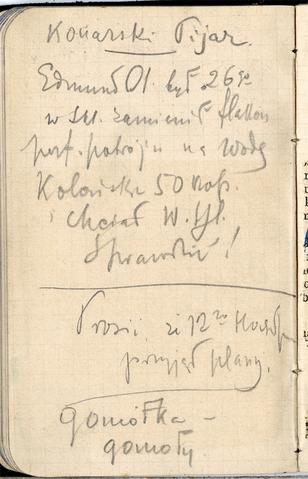 Konarski Pijar.
Edmund Ol. był 26go
w skl. zamienił flakon
perf. potrójn na wodę
Kolońską 50 kop.
i chciał W. Sł.
Sprawdzić!
Prosić, że 12go
przyjęć plany.
gomółka –
gomoły